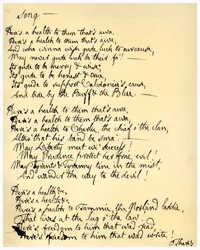 Song —
Here's a health to them that's awa,
Here's a health to them that's awa,
And wha winna wish gude luck to our cause,
May never gude luck be their fa'—
Its gude to be merry & wise,
Its gude to be honest & true,
Its gude to support Caledonia's cause,
And bide by the Buff & the Blue.
Here's a health to them that's awa,
Here's a health to them that's awa,
Here's a health to Charlie, the chief o' the clan,
Altho' that his band be sma'
May Liberty meet wi' success!
May Prudence protect her frae evil!
May Tyrants & Tyranny tine in the mist,
And wander the way to the devil!
Here's a health &c,
Here's a health &c
Here's a health to Tammie, the Norland laddie,
That lives at the lug o' the law!
Here's freedom to him that wad read,
Here's freedom to him that wad write!